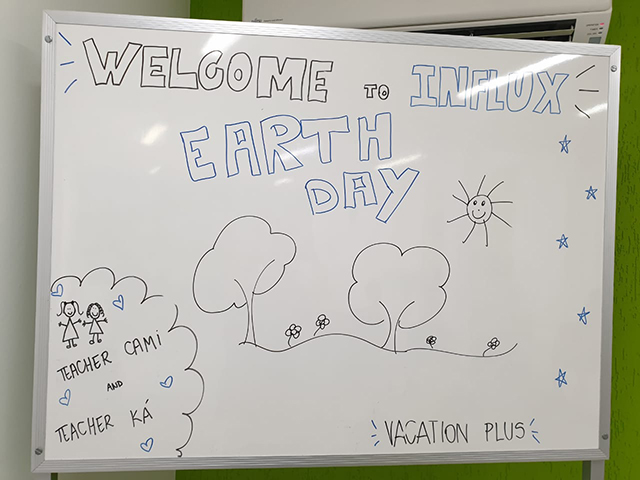 WELCOME TO INFLUX
EARTH
DAY
TEACHER CAMI
AND
TEACHER KÁ
VACATION PLUS